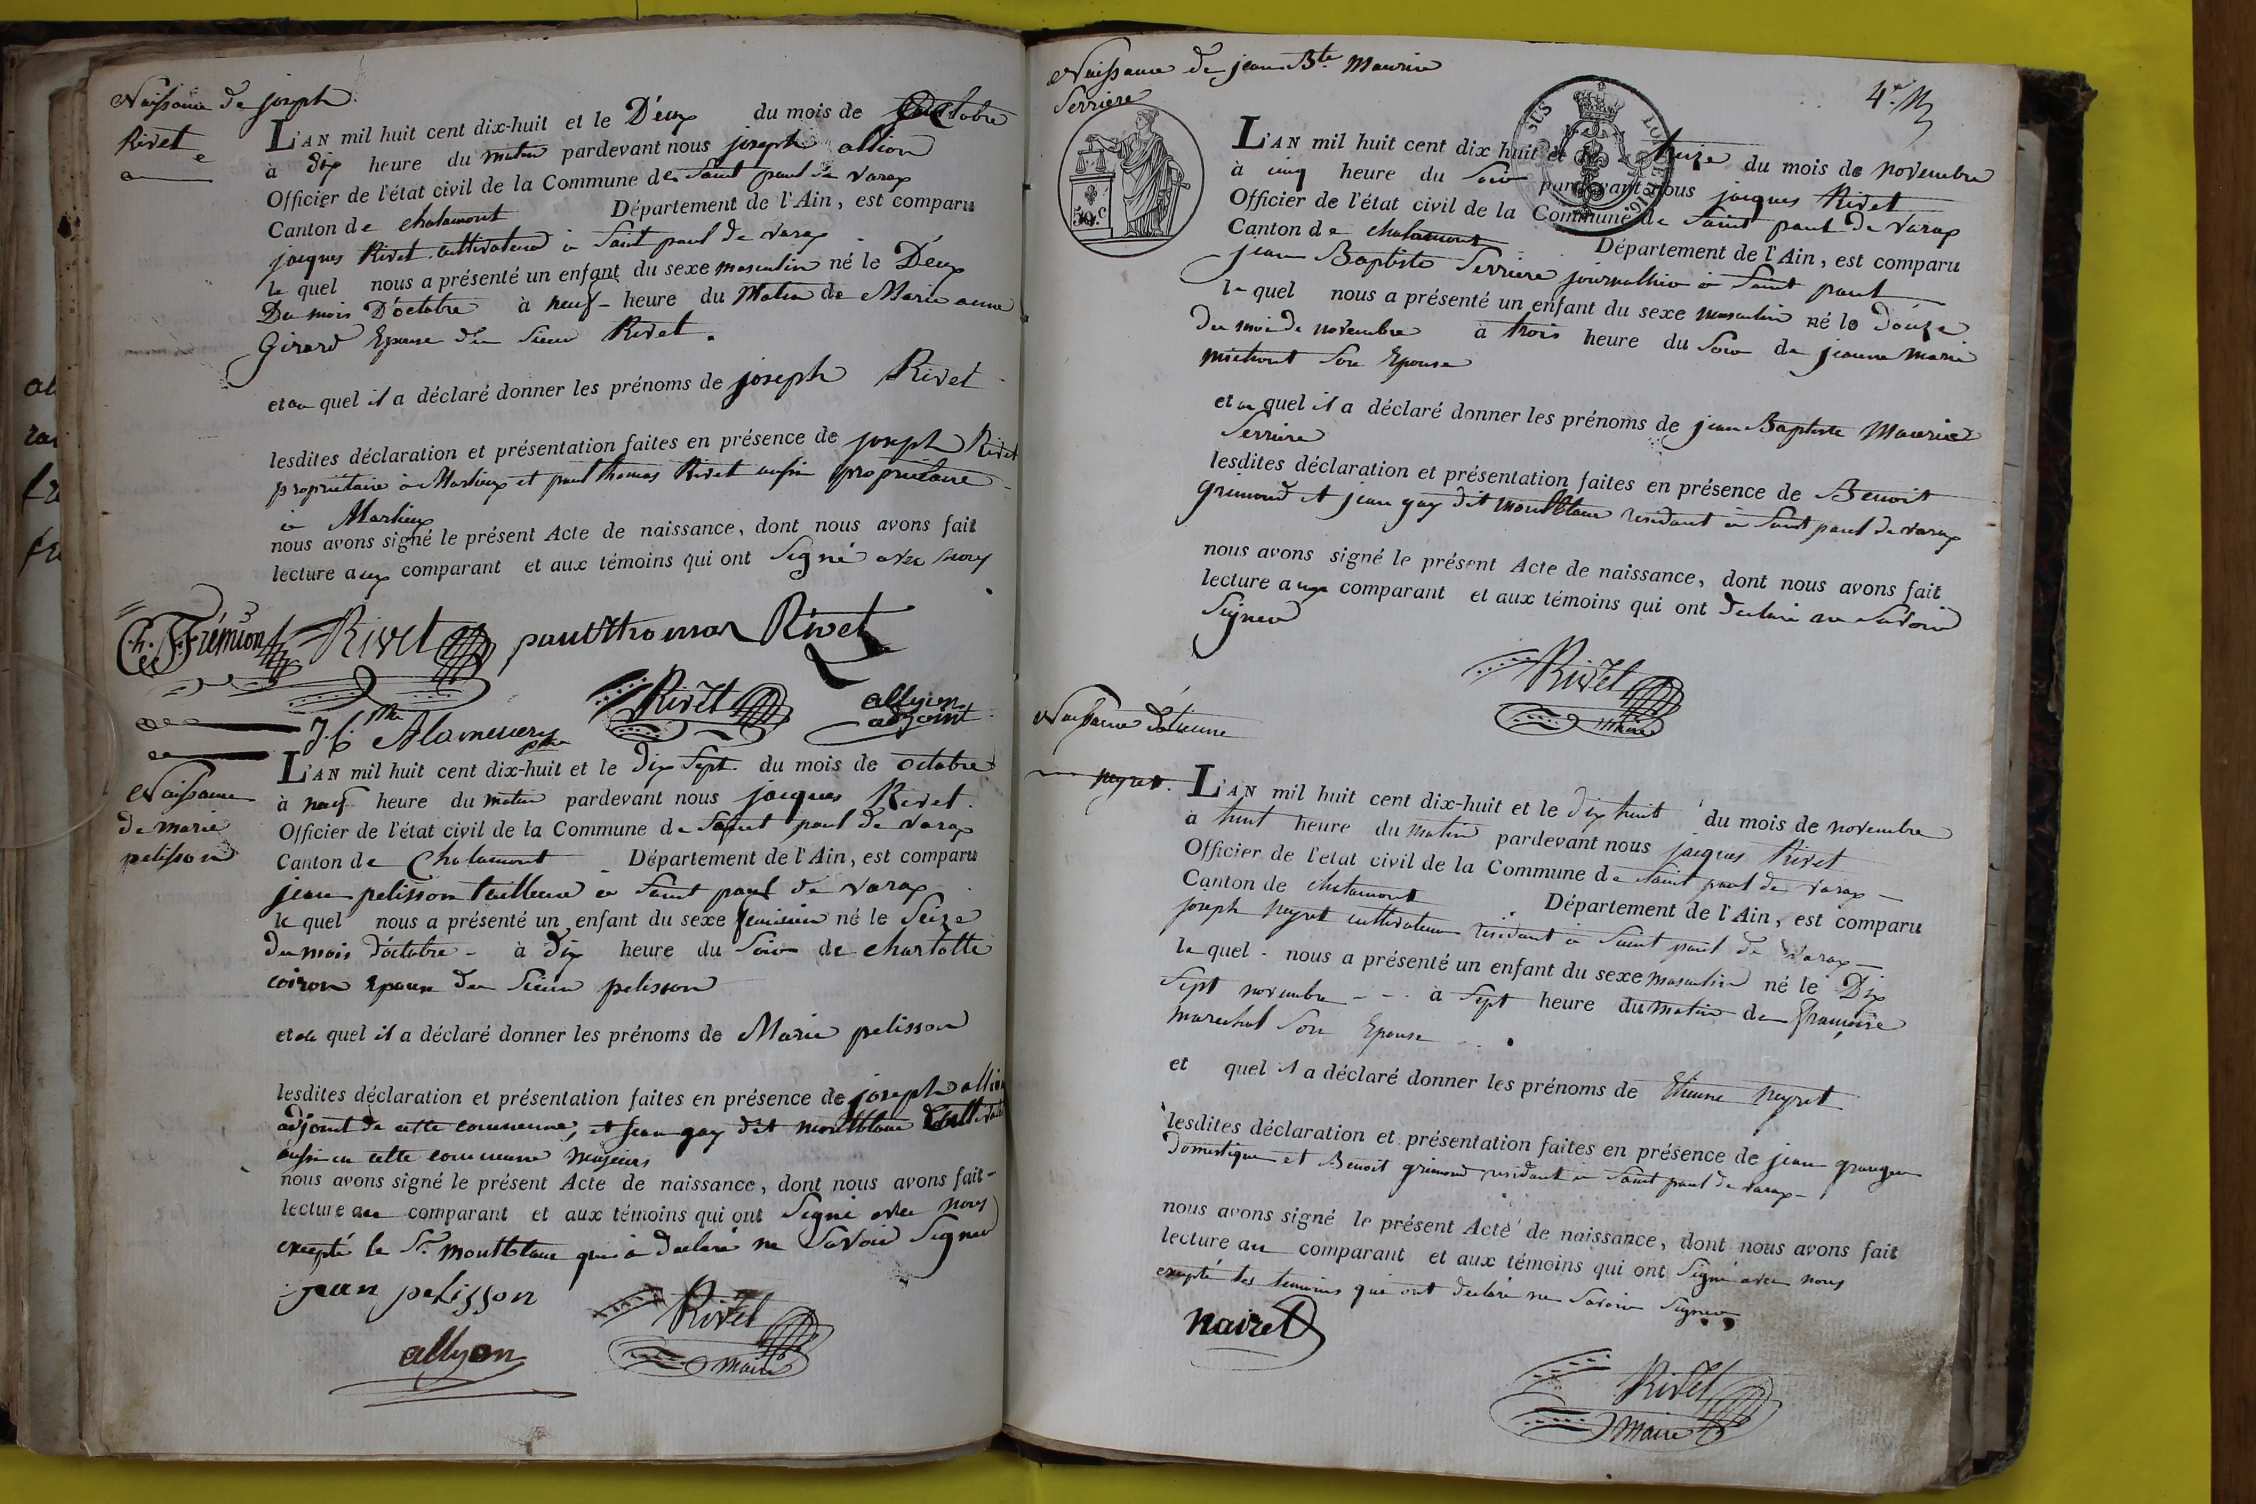 Naissance de joseph
Rivet
L'AN mil huit cent dix-huit et le Deux du mois de octobre
à dix heure du matin pardevant nous joseph allion
Officier de l'état civil de la Commune de Saint paul de varax
Canton de chalamont Département de l'Ain, est comparu
jacques Rivet cultivateur à Saint paul de varax
le quel nous a présenté un enfant du sexe masculin né le Deux
Du mois D'octobre à neuf heure du Matin de Marie anne
Girard Epouse du Sieur Rivet.
et au quel il a déclaré donner les prénoms de joseph Rivet
lesdites déclaration et présentation faites en présence de joseph Rivet
propriétaire à Marlieux et paul thomas Rivet aussi propriétaire
à Marlieux
nous avons signé le présent Acte de naissance, dont nous avons fait
lecture aux comparant et aux témoins qui ont Signé avec nous
Ch. F. Frémion Rivet paul thomas Rivet
Rivet allyon
adjoint
Naissance
de marie
pelisson
L'AN mil huit cent dix-huit et le dix Sept. du mois de octobre
à neuf heure du matin pardevant nous jacques Rivet.
Officier de l'état civil de la Commune de Saint paul de varax
Canton de Chalamont Département de l'Ain, est comparu
jean pelisson tailleur à Saint paul de varax
le quel nous a présenté un enfant du sexe feminin né le Seize
du mois d'octobre - à dix heure du Soir de charlotte
coiron Epouse du Sieur pelisson
et au quel il a déclaré donner les prénoms de Marie pelisson
lesdites déclaration et présentation faites en présence de joseph allion
adjoint de cette commune, et jean gay dit montblanc Cultivateur
aussi en cette commune majeurs
nous avons signé le présent Acte de naissance, dont nous avons fait -
lecture au comparant et aux témoins qui ont Signé avec nous
excepté le Sr. montblanc qui à declaré ne Savoir Signer
jean pelisson Rivet
maire
allyon
Naissance de jean Bte Maurice
Serriere
4e.
50.C
L'AN mil huit cent dix huit et le treize du mois de novembre
à cinq heure du Soir pardevant nous jacques Rivet
Officier de l'état civil de la Commune de Saint paul de varax
Canton de chalamont Département de l'Ain, est comparu
jean Baptiste Serriere journallier à Saint paul
le quel nous a présenté un enfant du sexe masculin né le douze
du moi de novembre à trois heure du Soir de jeanne marie
michout Son Epouse
et au quel il a déclaré donner les prénoms de jean Baptiste Maurice
Serriere
lesdites déclaration et présentation faites en présence de Benoit
grimond et jean gay dit montblanc residant à Saint paul de varax
nous avons signé le présent Acte de naissance, dont nous avons fait
lecture aux comparant et aux témoins qui ont declaré ne Savoir
Signer
Rivet
maire
Naissance d'Etienne
neyret.
L'AN mil huit cent dix-huit et le dix huit du mois de novembre
à huit heure du matin pardevant nous jacques Rivet
Officier de l'état civil de la Commune de Saint paul de varax -
Canton de chalamont Département de l'Ain, est comparu
joseph neyret cultivateur residant à Saint paul de varax -
le quel - nous a présenté un enfant du sexe masculin né le Dix
Sept novembre - - - à Sept heure du matin de françoise
marechal Son Epouse
et quel il a déclaré donner les prénoms de Etienne neyret
lesdites déclaration et présentation faites en présence de jean granger
Domestique et Benoit grimond residant à Saint paul de varax -
nous avons signé le présent Acte de naissance, dont nous avons fait
lecture au comparant et aux témoins qui ont Signé avec nous
excepté les temoins qui ont declaré ne Savoir Signer
nairet
Rivet
Maire